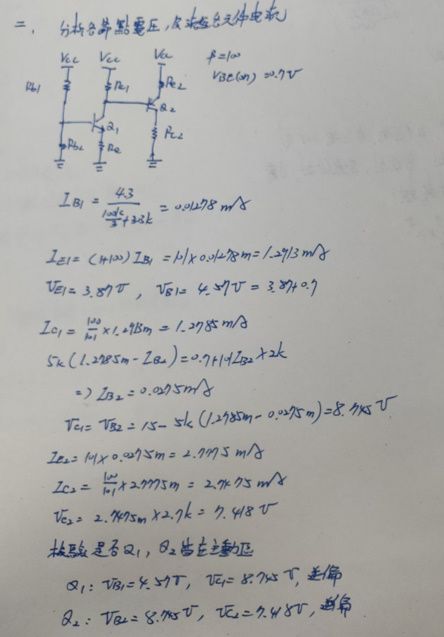 二、分析各節點電壓,及流經各元件電流
Vcc Vcc Vcc
RB1 Rc1 RE2
β=100
VBE(on)=0.7V
Q2
Q1
RB2 RE Rc2
IB1 = 4.3 / (100k/3 + 303k) = 0.01278 mA
IE1 = (1+100) IB1 = 101×0.01278m = 1.2913 mA
VE1 = 3.87V, VB1 = 4.57V = 3.87+0.7
Ic1 = 100/101 × 1.2913m = 1.2785 mA
5k(1.2785m - IB2) = 0.7+101IB2×2k
=> IB2 = 0.0275mA
Vc1 = VB2 = 15 - 5k(1.2785m - 0.0275m) = 8.745 V
IE2 = 101×0.0275m = 2.7775 mA
Ic2 = 100/101 × 2.7775m = 2.7475 mA
Vc2 = 2.7475m × 2.7k = 7.418 V
檢驗是否Q1, Q2皆在主動區
Q1: VB1 = 4.57V, Vc1 = 8.745V, 逆偏
Q2: VB2 = 8.745V, Vc2 = 7.418V, 逆偏